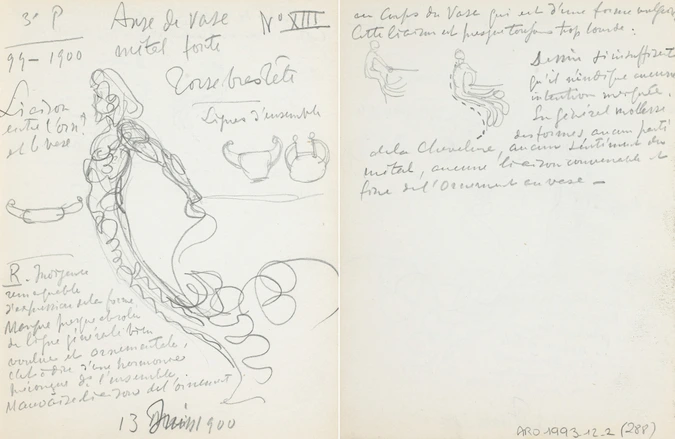 3e P
Anse de vase
métal fonte
No XIII
99-1900
Torse bras tête
Liaison
entre l'orn.
et le vase
Lignes d'ensemble
R. Inorgence
remarquable
d'expression de la forme
Manque presque absolu
de ligne générale bien
voulue et ornementale,
c'est à dire d'une harmonie
de l'ensemble.
Mauvaise liaison de l'ornement
13 Juin 1900
au Corps du Vase qui est d'une forme
Cette liaison est presque toujours trop lourde.
Dessin si insuffisant
qu'il n'indique aucune
intention marquée.
En général mollesse
des formes, aucun parti
de la Chevelure, aucun sentiment du
métal, aucune liaison convenable et
fine de l'Ornement au vase —
ARO 1993-12-2 (288)